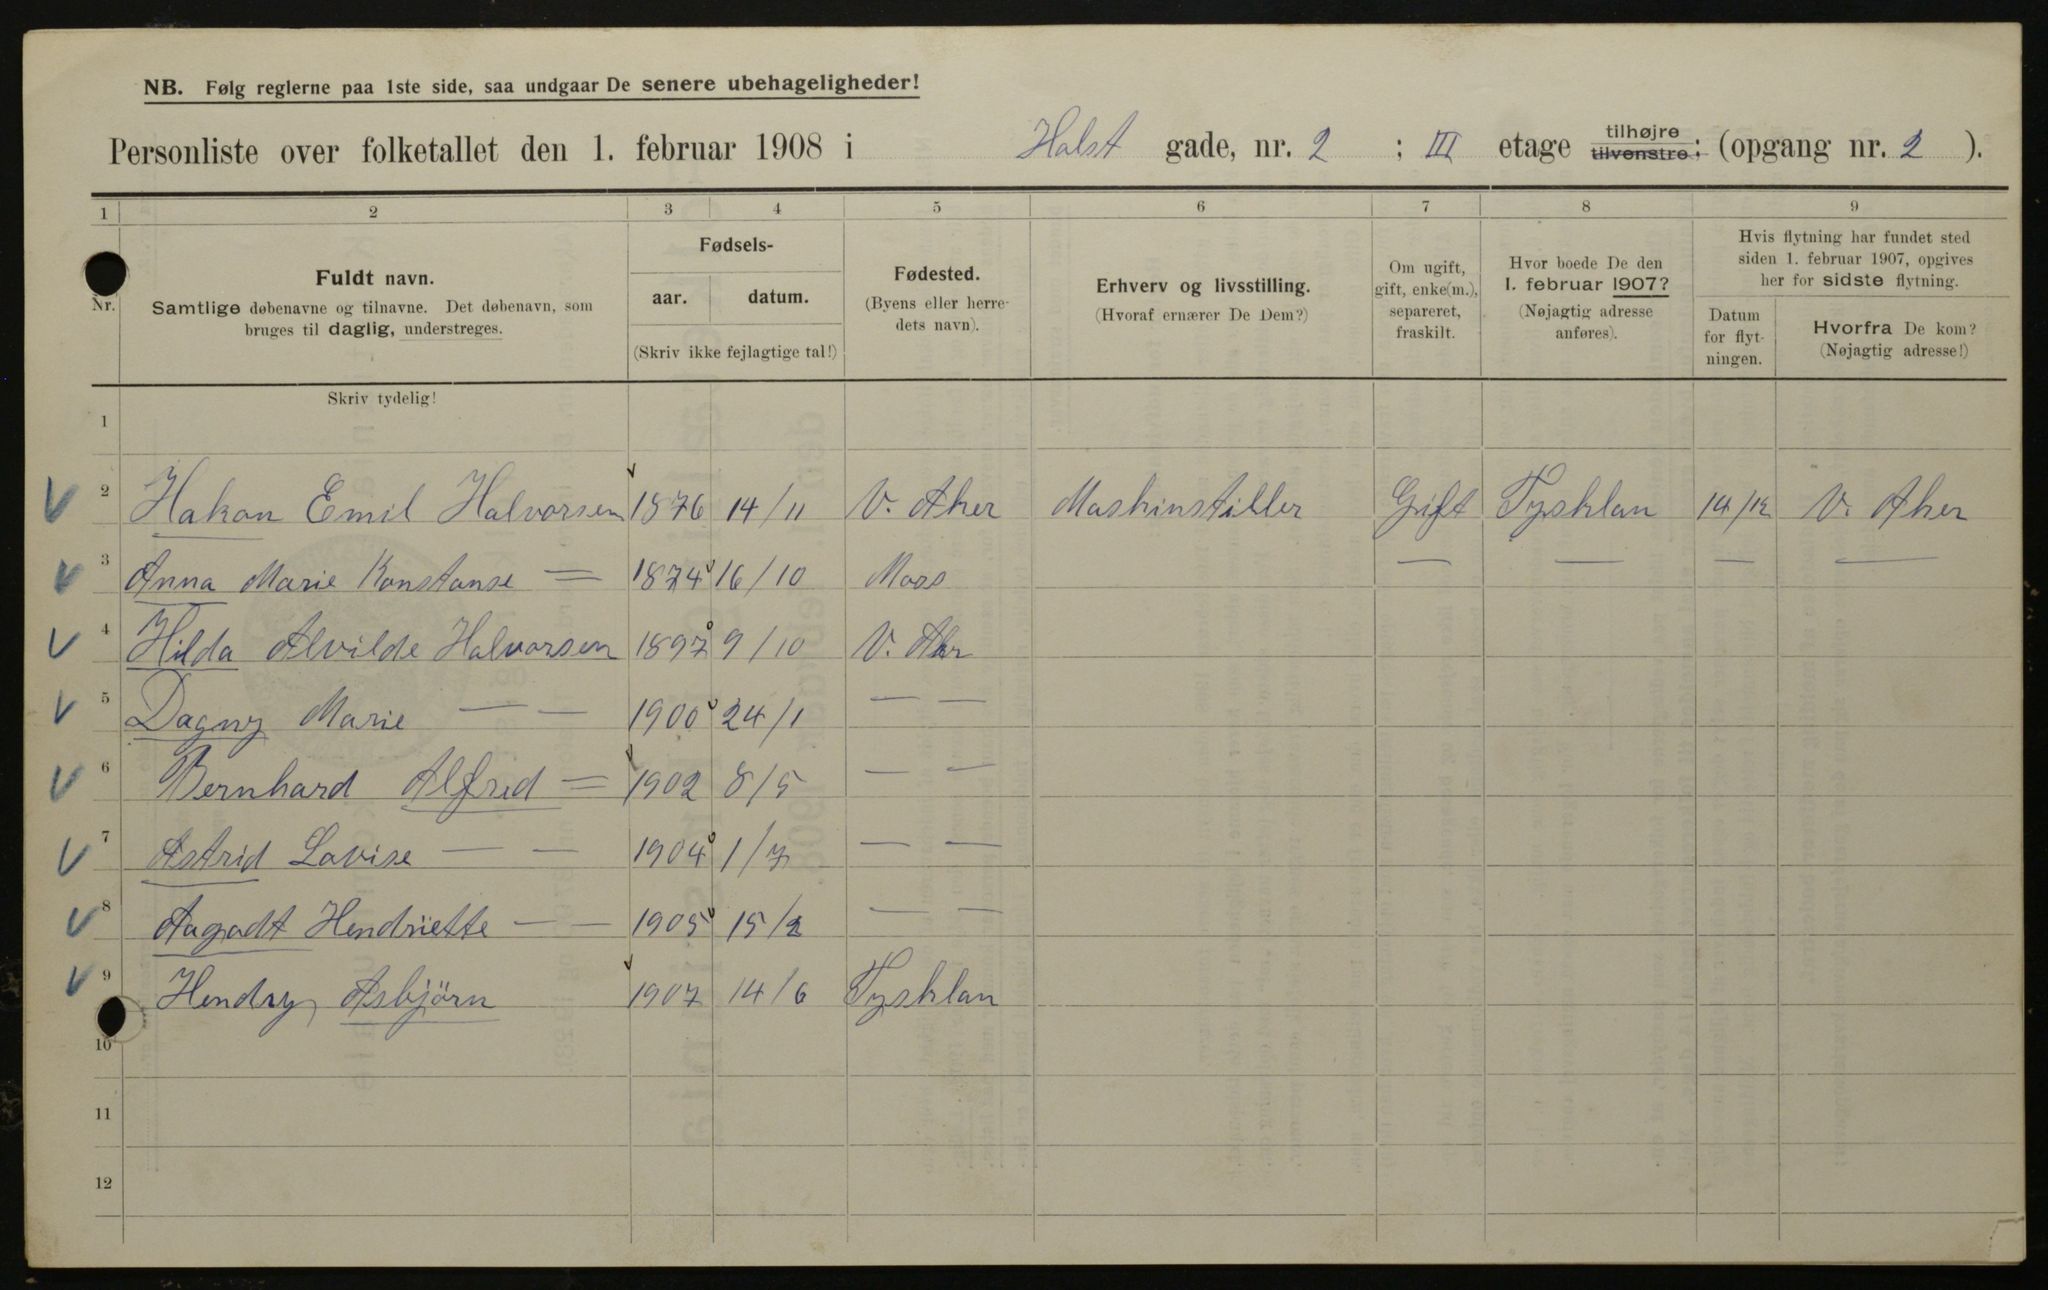 NB. Følg reglerne paa 1ste side, saa undgaar De senere ubehageligheder!
Personliste over folketallet den 1. februar 1908 i Holst gade, nr. 2 ; III etage tilhøjre tilvenstre; (opgang nr. 2 ).
1 2 3 4 5 6 7 8 9
Nr.
Fuldt navn.
Samtlige døbenavne og tilnavne. Det døbenavn, som
bruges til daglig, understreges.
Fødsels-
aar. datum.
(Skriv ikke fejlagtige tal!)
Fødested.
(Byens eller herre-
dets navn).
Erhverv og livsstilling.
(Hvoraf ernærer De Dem?)
Om ugift,
gift, enke(m.),
separeret,
fraskilt.
Hvor boede De den
1. februar 1907?
(Nøjagtig adresse
anføres).
Hvis flytning har fundet sted
siden 1. februar 1907, opgives
her for sidste flytning.
Datum
for flyt-
ningen.
Hvorfra De kom?
(Nøjagtig adresse!)
Skriv tydelig!
1
2 Hakon Emil Halvorsen 1876 14/11 V. Aker Maskinstiller Gift Tysklan 14/12 V. Aker
3 Anna Marie Konstanse = 1874 16/10 Moss — — — —
4 Hilda Alvilde Halvorsen 1897 9/10 V. Aker
5 Dagny Marie — — 1900 24/1 — —
6 Bernhard Alfred = 1902 8/5 — —
7 Astrid Lovise — — 1904 1/7 — —
8 Aagodt Hendriette — — 1905 15/2 — —
9 Hendry Asbjörn 1907 14/6 Tysklan
10
11
12